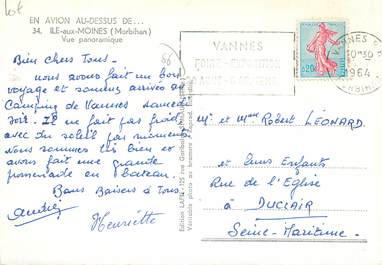 Lot
EN AVION AU-DESSUS DE...
34. ILE-aux-MOINES (Morbihan)
Vue panoramique
Bien chers Tous.
nous avons fait un bon
voyage et sommes arrivés au
Camping de Vannes samedi
soir. Il ne fait pas froid
avec du soleil par moments
Nous sommes très bien et
avons fait une grande
promenade en bateau.
Bons Baisers à Tous.
André
Henriette
Edition LAPIE - 125 rue
Véritable photo au bromure
VANNES
FOIRE-EXPOSITION
VANNES
1964
0,20
Mr et Mme Robert LÉONARD
et Leurs Enfants
Rue de l'Eglise
à DUCLAIR
Seine-Maritime.